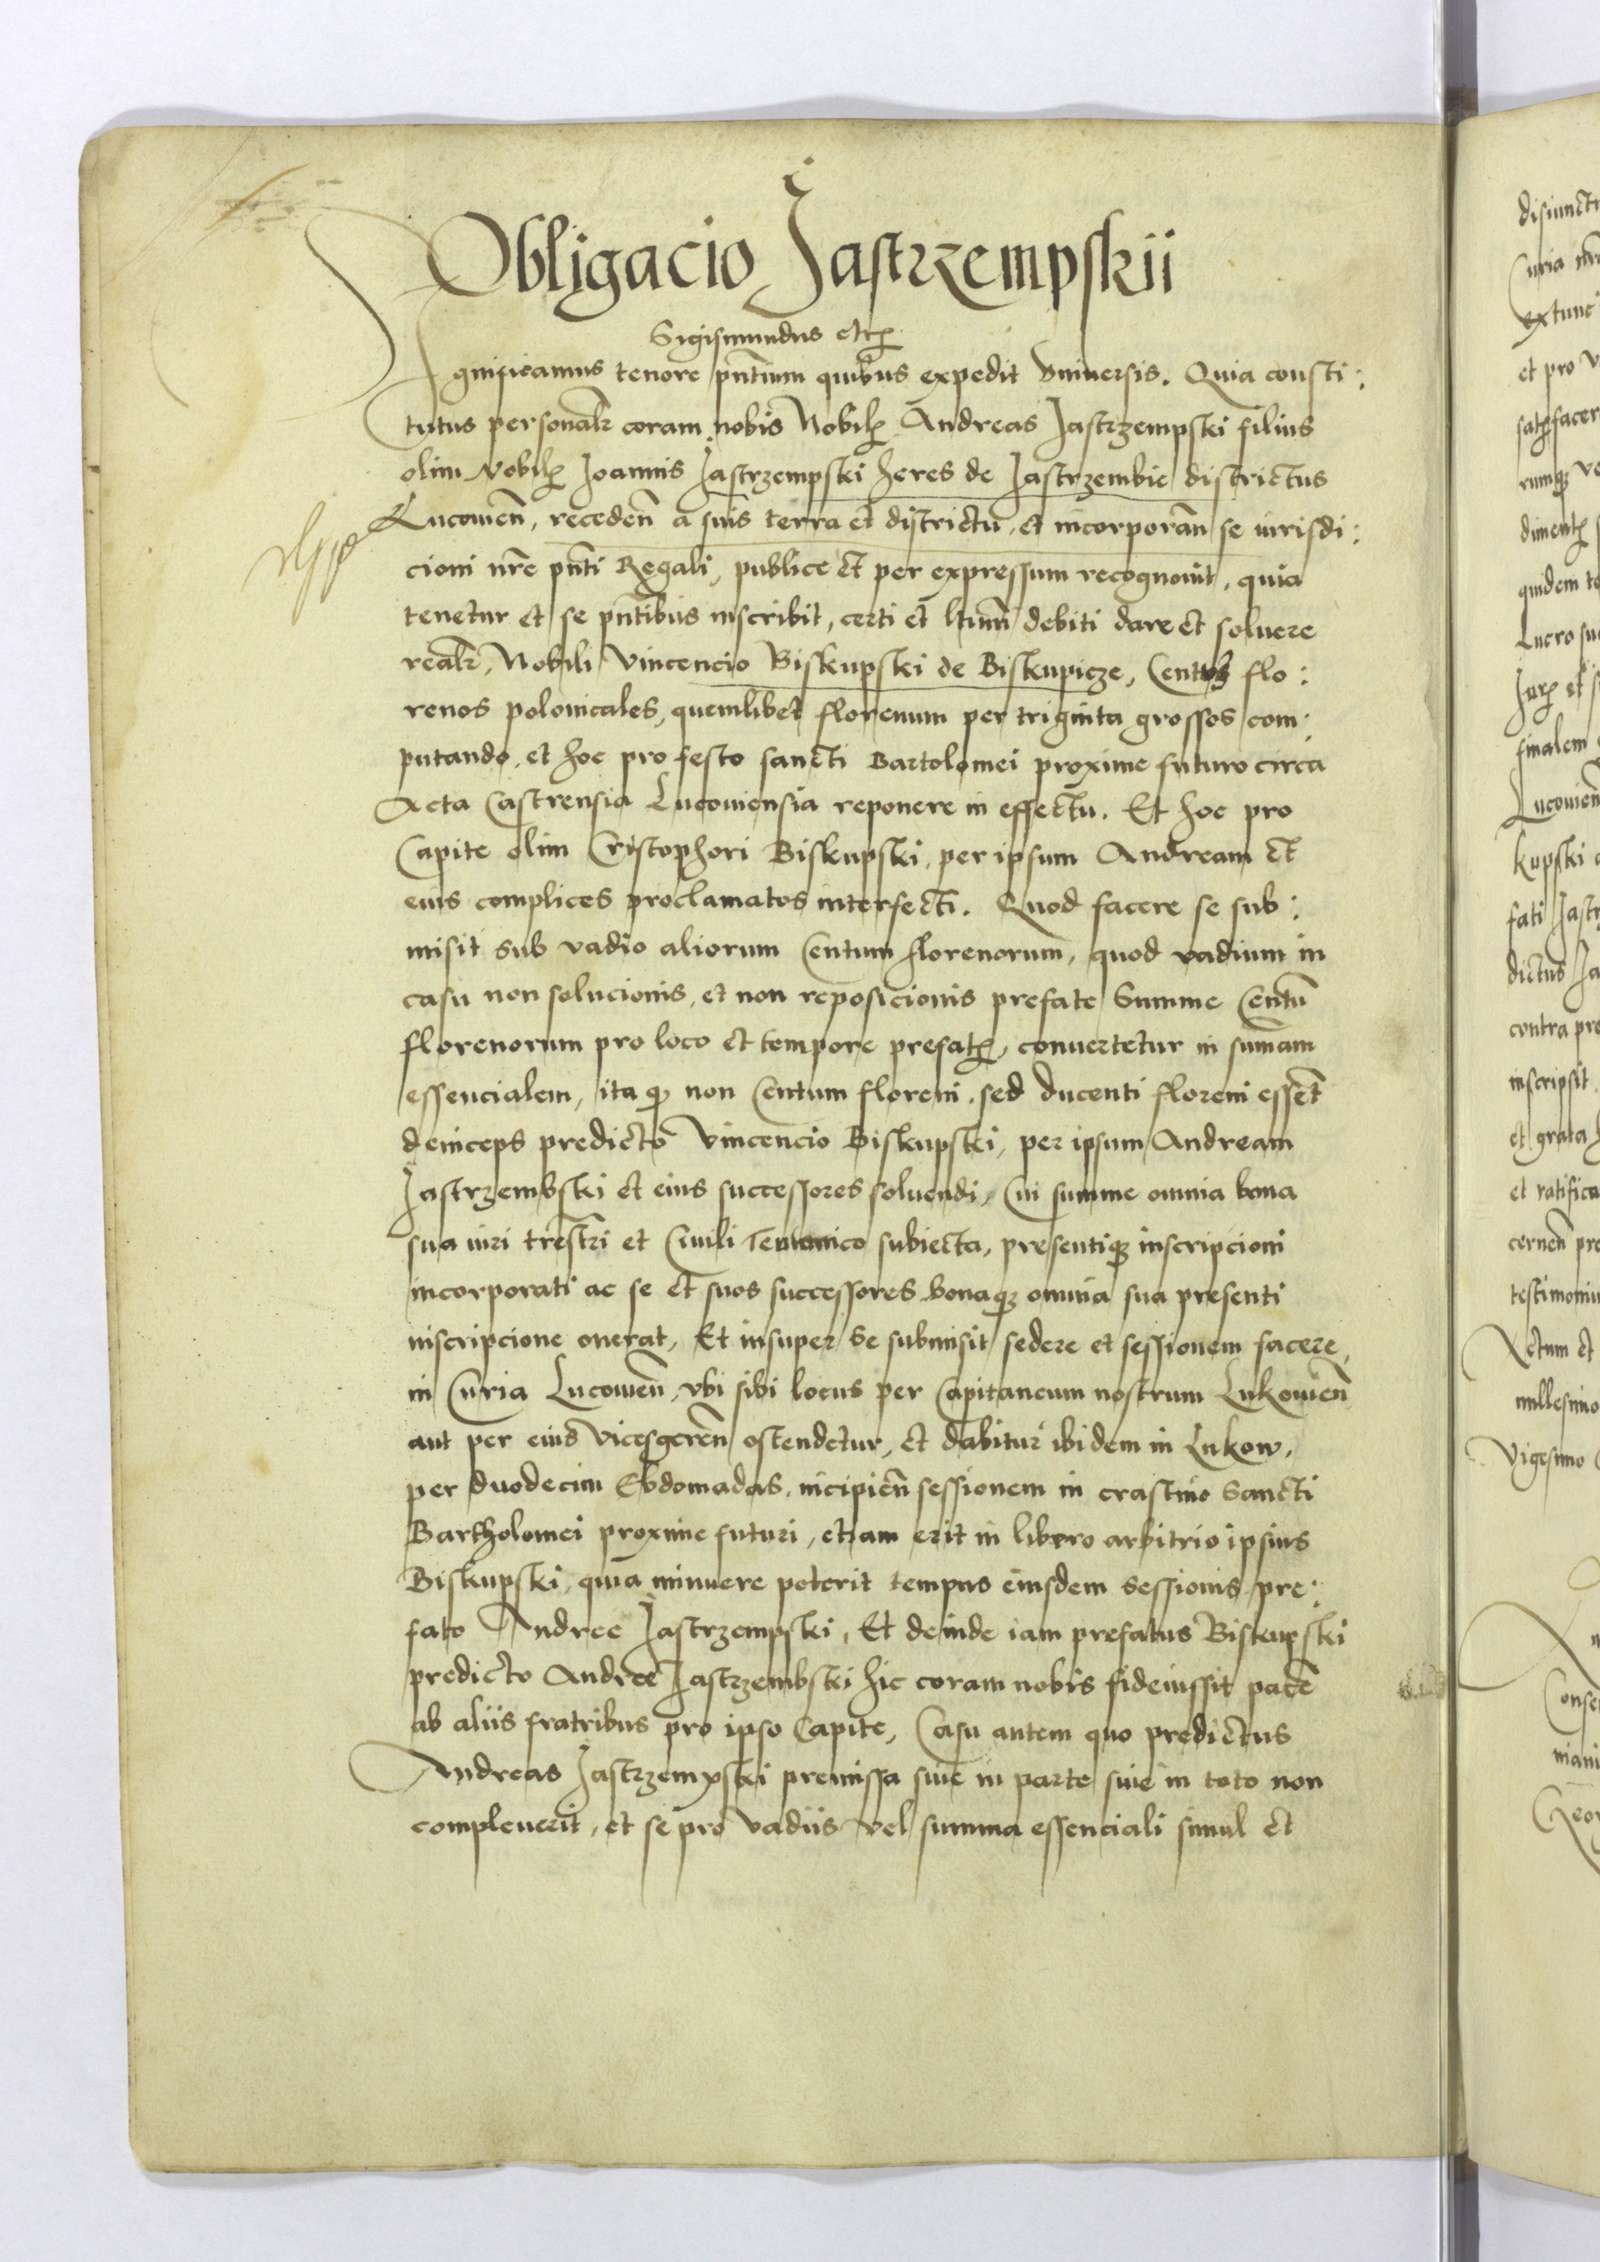 Obligacio Jastrzempskii
Sigismundus etc
Significamus tenore pñtium quibus expedit Vniuersis. Quia consti:
tutus personalr coram nobis Nobil Andreas Jastrzempski filius
olim Nobil Joannis Jastrzempski heres de Jastrzembie districtus
Lucouieñ, recedeñ a suis terra et districtu, et incorporañ se iurisdi:
cioni nr̃e pñti Regali, publice et per expressum recognouit, quia
tenetur et se pñtibus inscribit, certi et ltimi debiti dare et soluere
realr, Nobili Vincencio Biskupski de Biskupicze, Centum flo:
renos polonicales, quemlibet florenum per triginta grossos com:
putando, et hoc pro festo sancti Bartolomei proxime futuro circa
Acta Castrensia Lucouiensia reponere in effectu. Et hoc pro
Capite olim Cristophori Biskupski, per ipsum Andream et
eius complices proclamatos interfecti. Quod facere se sub:
misit sub vadio aliorum Centum florenorum, quod vadium in
casu non solucionis, et non reposicionis prefate Summe Centũ
florenorum pro loco et tempore prefat, conuertetur in sum̃am
essencialem, ita q non Centum floreni, sed ducenti floreni esseñt
deinceps predicto Vincencio Biskupski, per ipsum Andream
Jastrzembski et eius successores soluendi, Cui summe omnia bona
sua iuri tr̃estri et Ciuili Teutonico subiecta, presentiq inscripcioni
incorporati ac se et suos successores bonaq omnia sua presenti
inscripcione onerat, Et insuper se submisit sedere et sessionem facere,
in Curia Lucouieñ, vbi sibi locus per Capitaneum nostrum Lukouieñ
aut per eius vicesgereñ ostendetur, et dabitur ibidem in Lukow,
per duodecim Ebdomadas, incipieñ sessionem in crastino Sancti
Bartholomei proxime futuri, etiam erit in libero arbitrio ipsius
Biskupski, quia minuere poterit tempus eiusdem sessionis pre:
fato Andree Jastrzempski, Et deinde iam prefatus Biskupski
predicto Andree Jastrzembski hic coram nobis fideiussit pacẽ
ab aliis fratribus pro ipso Capite, Casu autem quo predictus
Andreas Jastrzempski premissa siue in parte siue in toto non
compleuerit, et se pro vadiis vel summa essenciali simul et